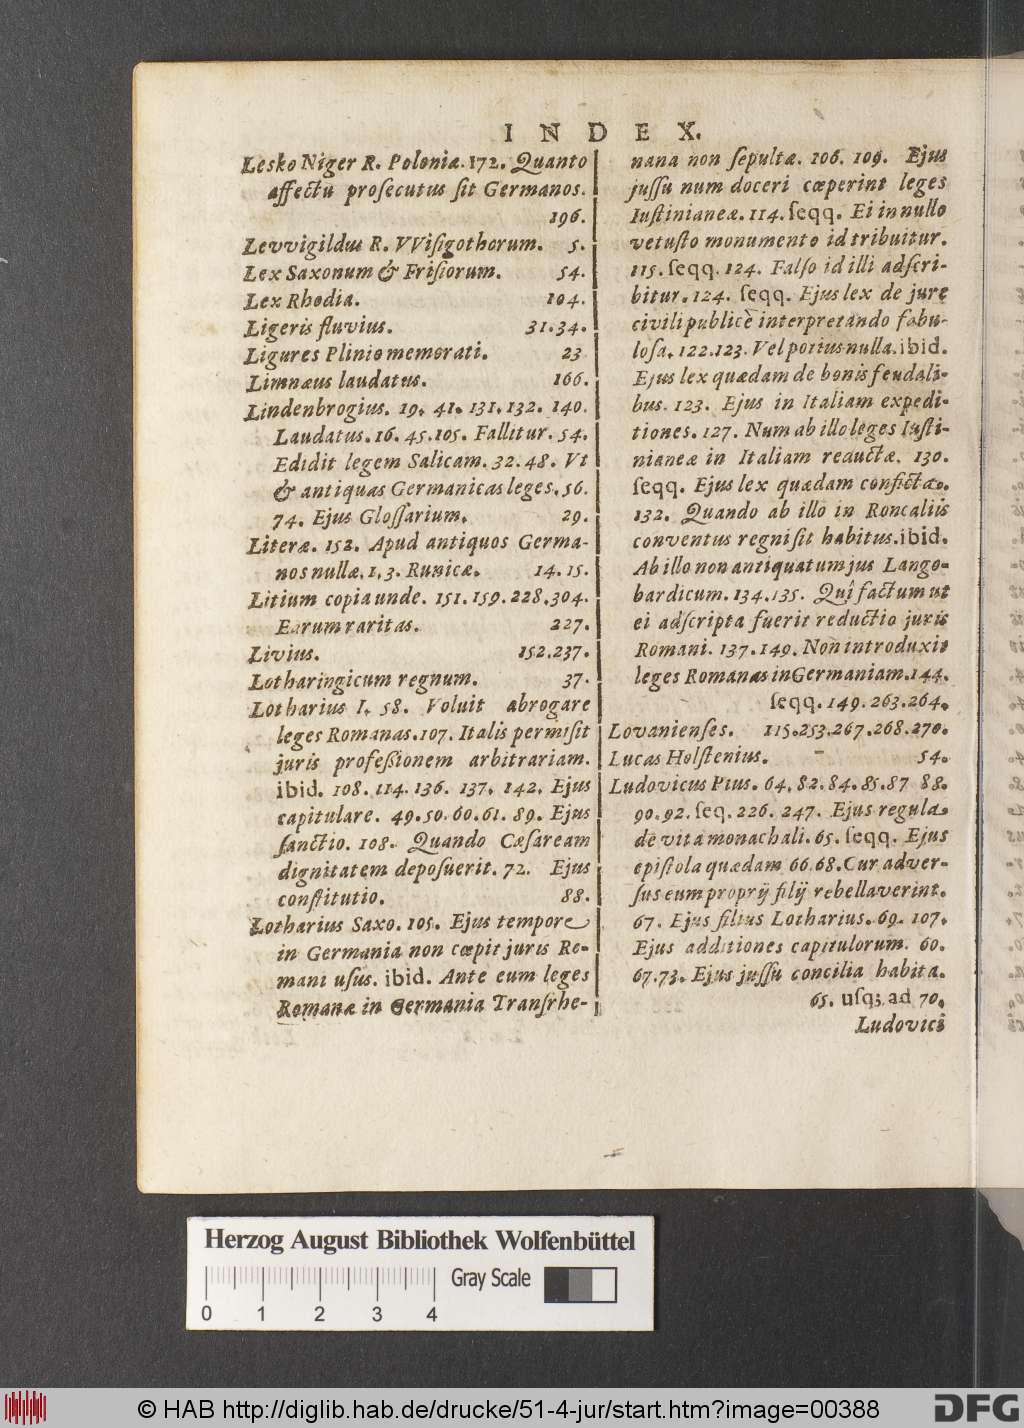 INDEX.
Lesko Niger R. Poloniæ. 172. Quanto
affectu prosecutus sit Germanos.
196.
Levvigildus R. VVisigothorum. 5.
Lex Saxonum & Frisiorum. 54.
Lex Rhodia. 104.
Ligeris fluvius. 31. 34.
Ligures Plinio memorati. 23
Limnæus laudatus. 166.
Lindenbrogius. 19. 41. 131. 132. 140.
Laudatus. 16. 45. 105. Fallitur. 54.
Edidit legem Salicam. 32. 48. Vt
& antiquas Germanicas leges. 56.
74. Ejus Glossarium. 29.
Literæ. 152. Apud antiquos Germa-
nos nullæ. 1. 3. Runicæ. 14. 15.
Litium copia unde. 151. 159. 228. 304.
Earum raritas. 227.
Livius. 152. 237.
Lotharingicum regnum. 37.
Lotharius I. 58. Voluit abrogare
leges Romanas. 107. Italis permisit
juris professionem arbitrariam.
ibid. 108. 114. 136. 137. 142. Ejus
capitulare. 49. 50. 60. 61. 89. Ejus
sanctio. 108. Quando Cæsaream
dignitatem deposuerit. 72. Ejus
constitutio. 88.
Lotharius Saxo. 105. Ejus tempore
in Germania non cœpit juris Ro-
mani usus. ibid. Ante eum leges
Romanæ in Germania Transrhe-
nana non sepultæ. 106. 109. Ejus
jussu num doceri cœperint leges
Iustinianeæ. 114. seqq. Ei in nullo
vetusto monumento id tribuitur.
115. seqq. 124. Falso id illi adscri-
bitur. 124. seqq. Ejus lex de jure
civili publicè interpretando fabu-
losa. 122. 123. Vel potius nulla. ibid.
Ejus lex quædam de bonis feudali-
bus. 123. Ejus in Italiam expedi-
tiones. 127. Num ab illo leges Iusti-
nianeæ in Italiam reductæ. 130.
seqq. Ejus lex quædam conficta.
132. Quando ab illo in Roncaliis
conventus regni sit habitus. ibid.
Ab illo non antiquatum jus Lango-
bardicum. 134. 135. Qui factum ut
ei adscripta fuerit reductio juris
Romani. 137. 149. Non introduxit
leges Romanas in Germaniam. 144.
seqq. 149. 263. 264.
Lovanienses. 115. 253. 267. 268. 270.
Lucas Holstenius. 54.
Ludovicus Pius. 64. 82. 84. 85. 87 88.
90. 92. seq. 226. 247. Ejus regula
de vita monachali. 65. seqq. Ejus
epistola quædam 66. 68. Cur adver-
sus eum proprij filij rebellaverint.
67. Ejus filius Lotharius. 69. 107.
Ejus additiones capitulorum. 60.
67. 73. Ejus jussu concilia habita.
65. usq; ad 70.
Ludovici
Herzog August Bibliothek Wolfenbüttel
0 1 2 3 4
Gray Scale
© HAB http://diglib.hab.de/drucke/51-4-jur/start.htm?image=00388
DFG